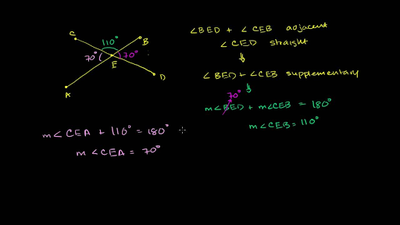 C
110°
B
70°
E
70°
A
D
∠BED + ∠CEB adjacent
∠CED straight
∠BED + ∠CEB supplementary
70°
m∠BED + m∠CEB = 180°
m∠CEB = 110°
m∠CEA + 110° = 180°
m∠CEA = 70°